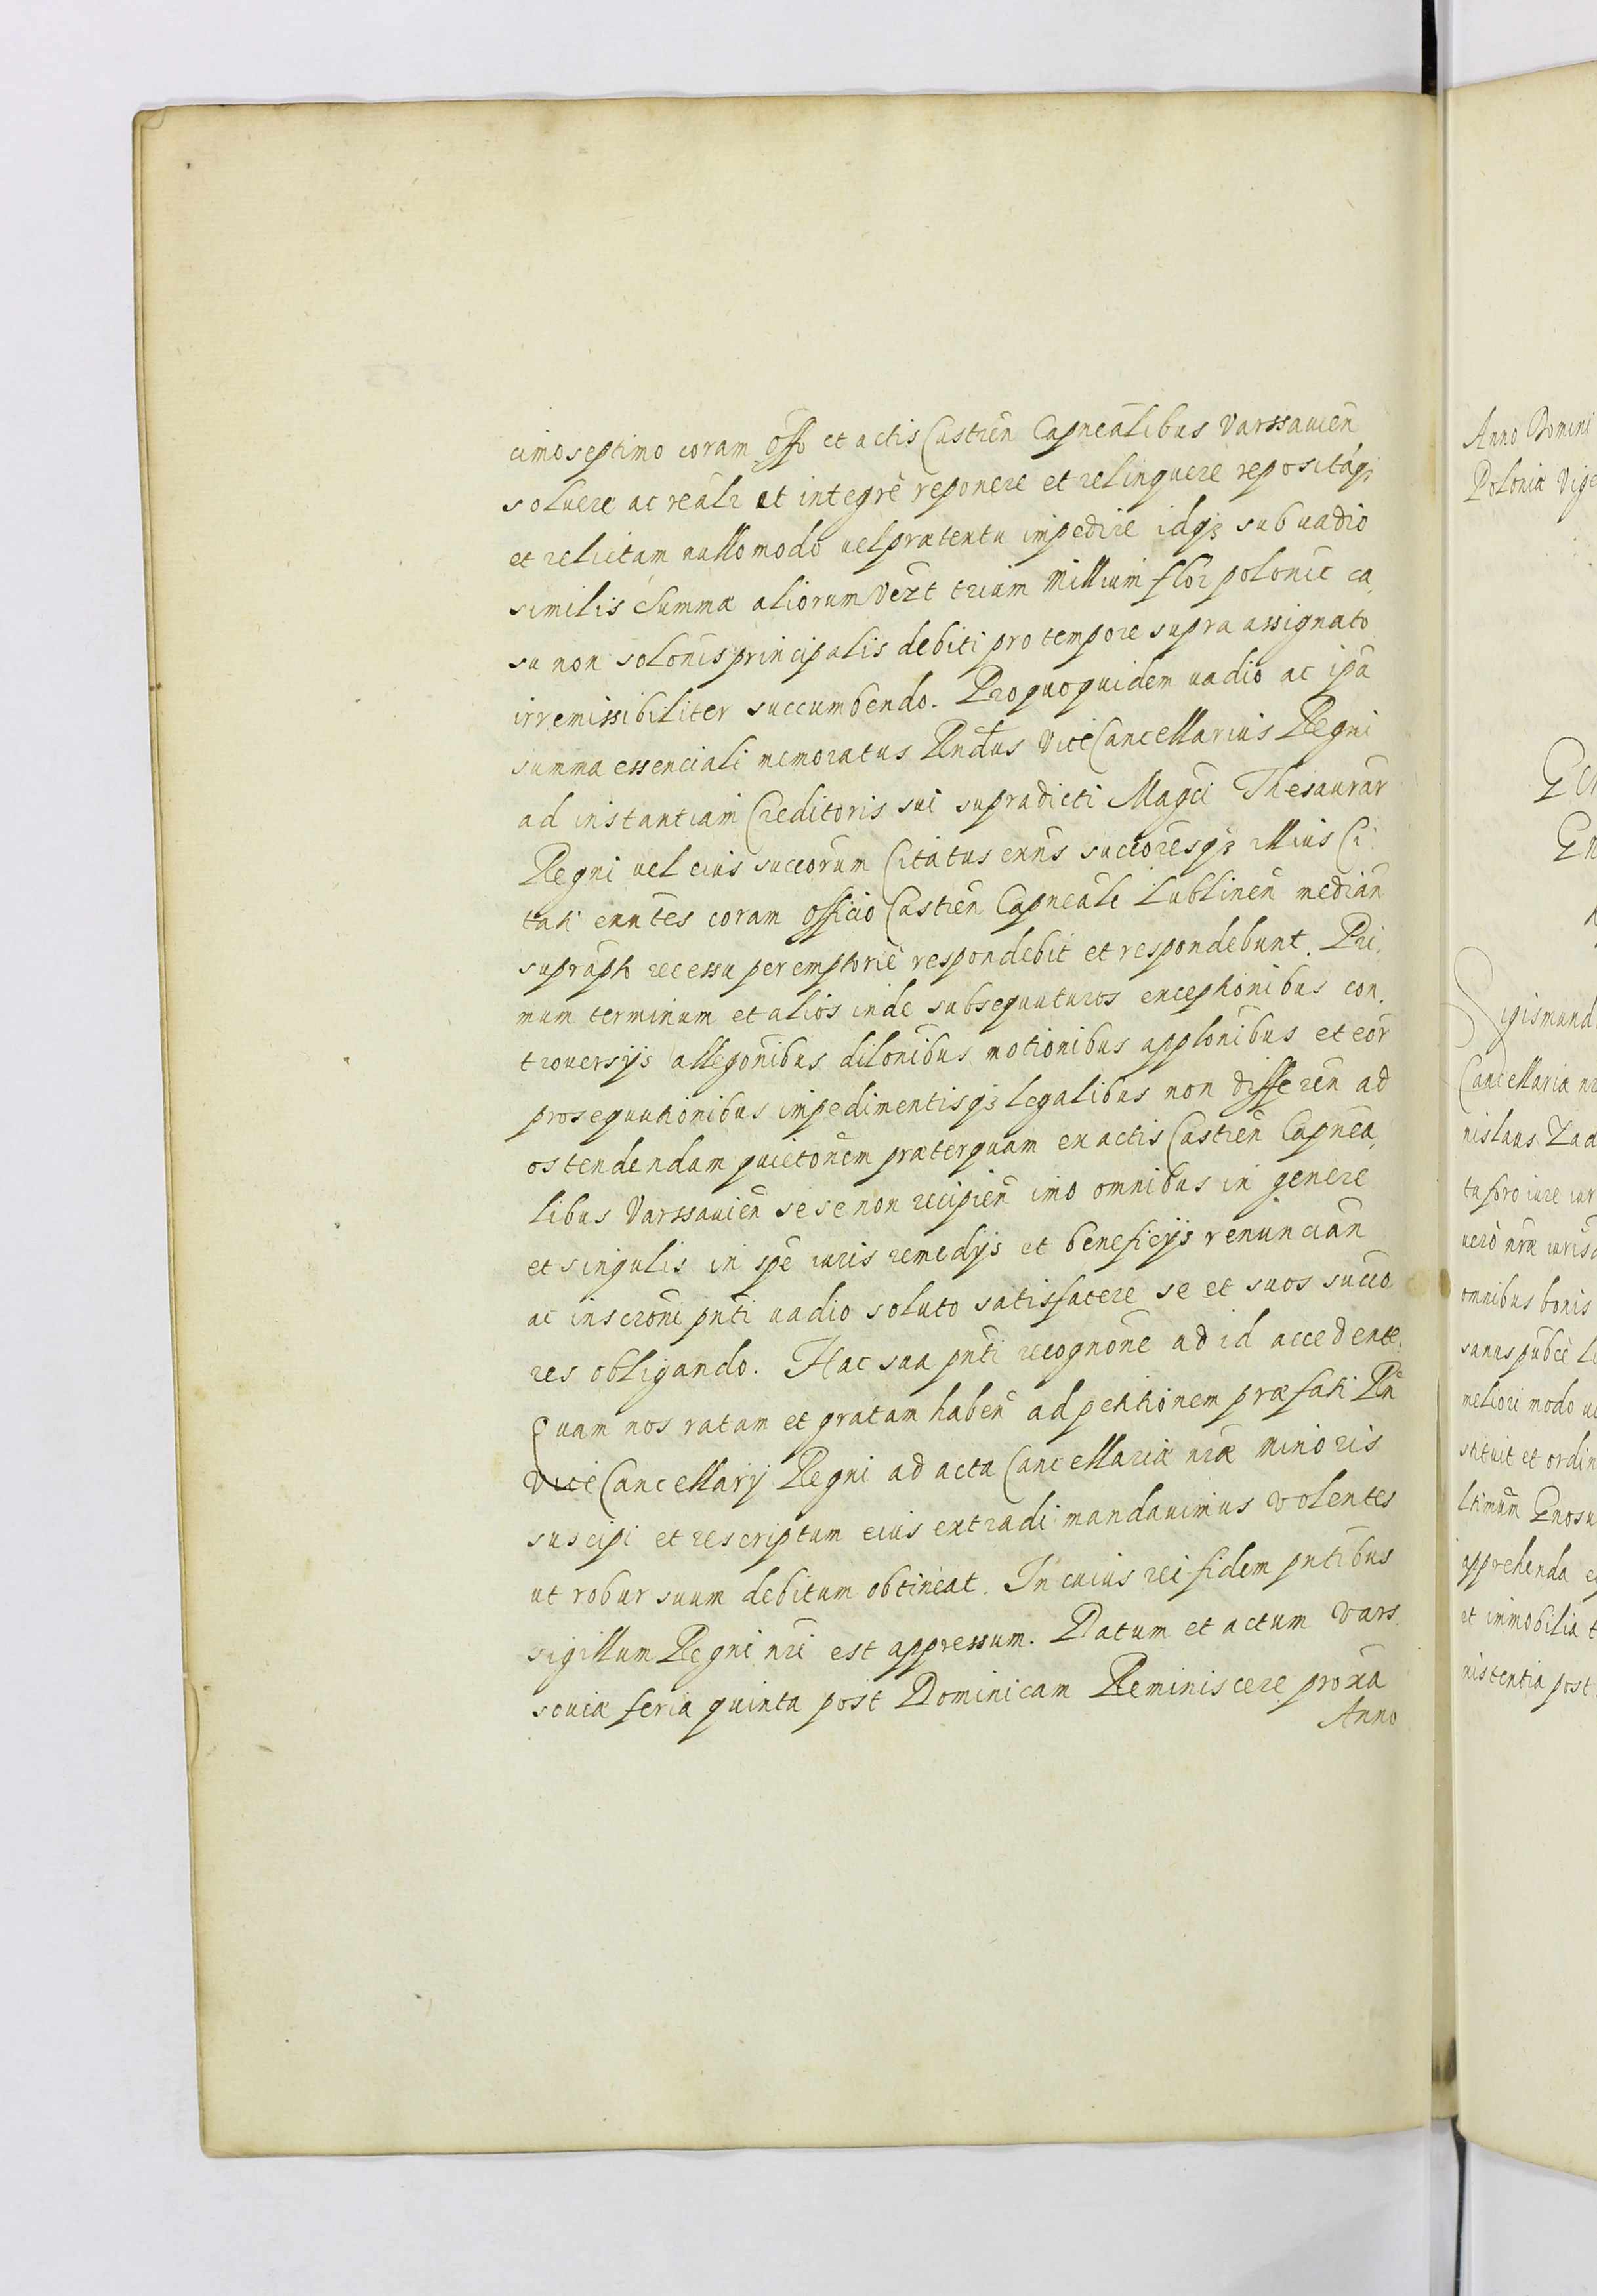 cimoseptimo coram Offo et actis Castrēn Capnēalibus Varssauiēn
soluere ac reālr et integrè reponere et relinquere repositāqȝ
et relictam nullo modo uel prætentu impedire idqȝ sub vadio
similis Summæ aliorum Vezt trium Millium flor polonic ca,
su non solōnis principalis debiti pro tempore supra assignato
irremissibiliter succumbendo. Pro quo quidem uadio ac ipā
summa essenciali memoratus Rndus ViceCancellarius Regni
ad instantiam Creditoris sui supradicti Magci Thesaurār
Regni uel eius succorum Citatus exn̄s succoresqȝ illius Ci:
tati exn̄tes coram officio Castrēn Capneāli Lublinēn mediān
supraplo recessu peremptoriè respondebit et respondebunt. Pri,
mum terminum et alios inde subsequuturos exceptionibus con,
trouersijs allegōnibus dilōnibus motionibus applōnibus et eōr
prosequutionibus impedimentisqȝ legalibus non differēn ad
ostendendam quietōnem præterquam ex actis Castrēn Capnēa,
libus Varssauiēn se se non recipiēn imo omnibus in genere
et singulis in spē iuris remedijs et beneficijs renunciān
ac inscrōni pn̄ti uadio soluto satisfacere se et suos succo
res obligando. Hac sua pn̄ti recognōne ad id accedente.
Quam nos ratam et gratam habēn ad petitionem præfati Rn̄
ViceCancellarij Regni ad acta Cancellariæ nr̄æ minoris
suscipi et rescriptum eius extradi mandauimus volentes
ut robur suum debitum obtineat. In cuius rei fidem pn̄tibus
sigillum Regni nr̄i est appressum. Datum et actum Vars
souiæ feria quinta post Dominicam Reminiscere prōxa
Anno
Anno Domini
Poloniæ Vige
Sigismund
Cancellariæ nr
nislaus Zad
ta foro iure iur
uerò nr̄æ iurisd
omnibus bonis
sanus pubcè
meliori modo
stituit et ordin
ltimum Gnosu
apprehenda
et immobilia
nistentia post